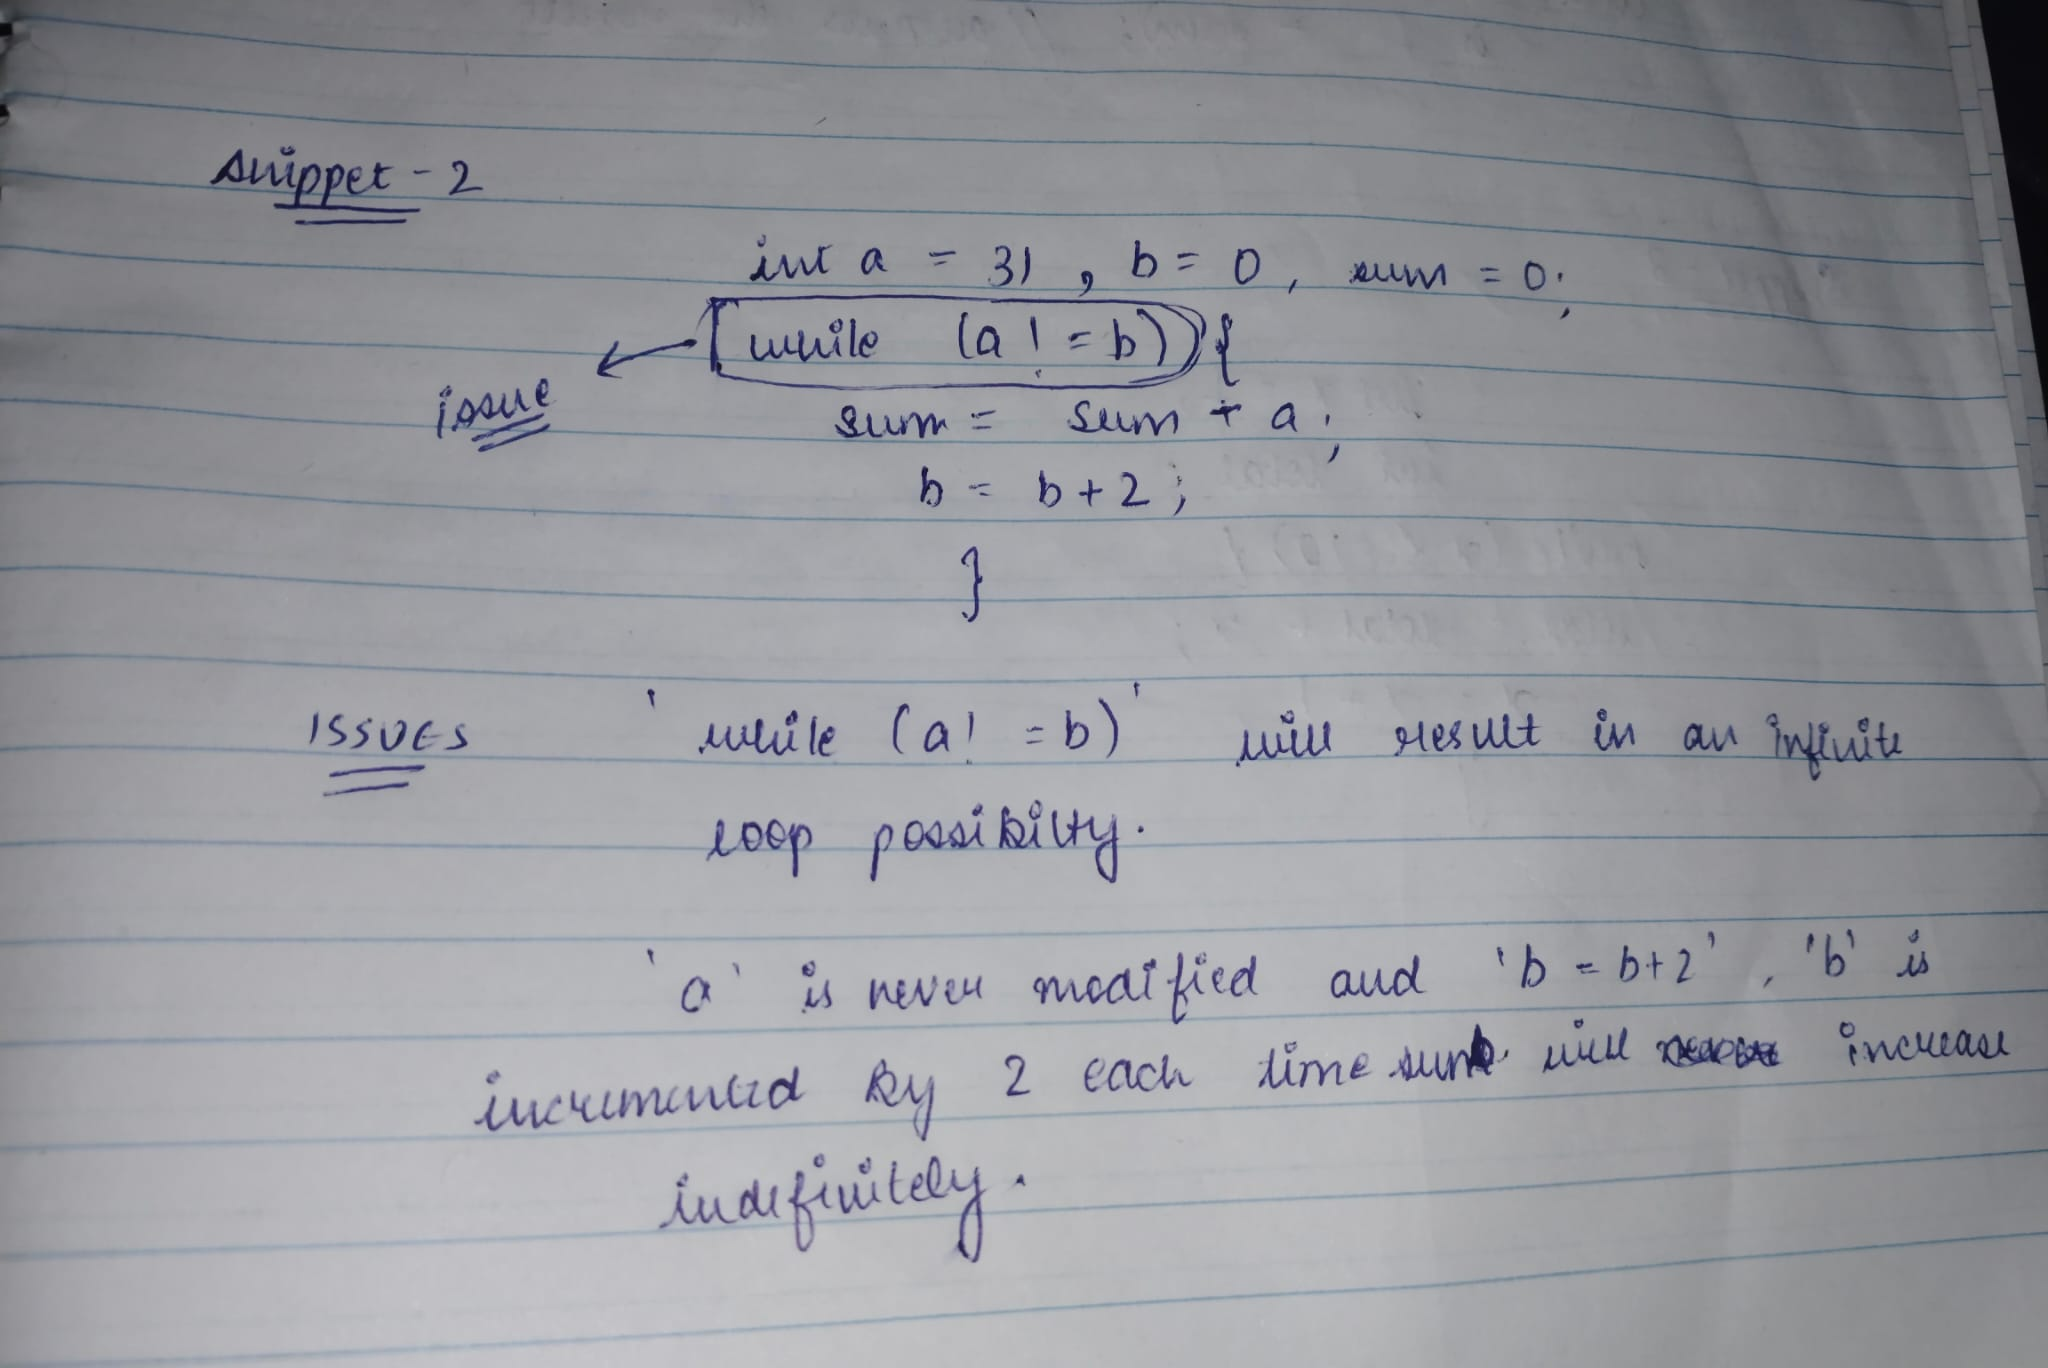 snippet - 2
int a = 31, b = 0, sum = 0;
while (a ! = b) {
issue
sum = sum + a;
b = b+2;
}
ISSUES 'while (a! = b)' will result in an infinite
loop possibilty.
'a' is never modified and 'b = b+2', 'b' is
incremented by 2 each time sum will increase
indefinitely.